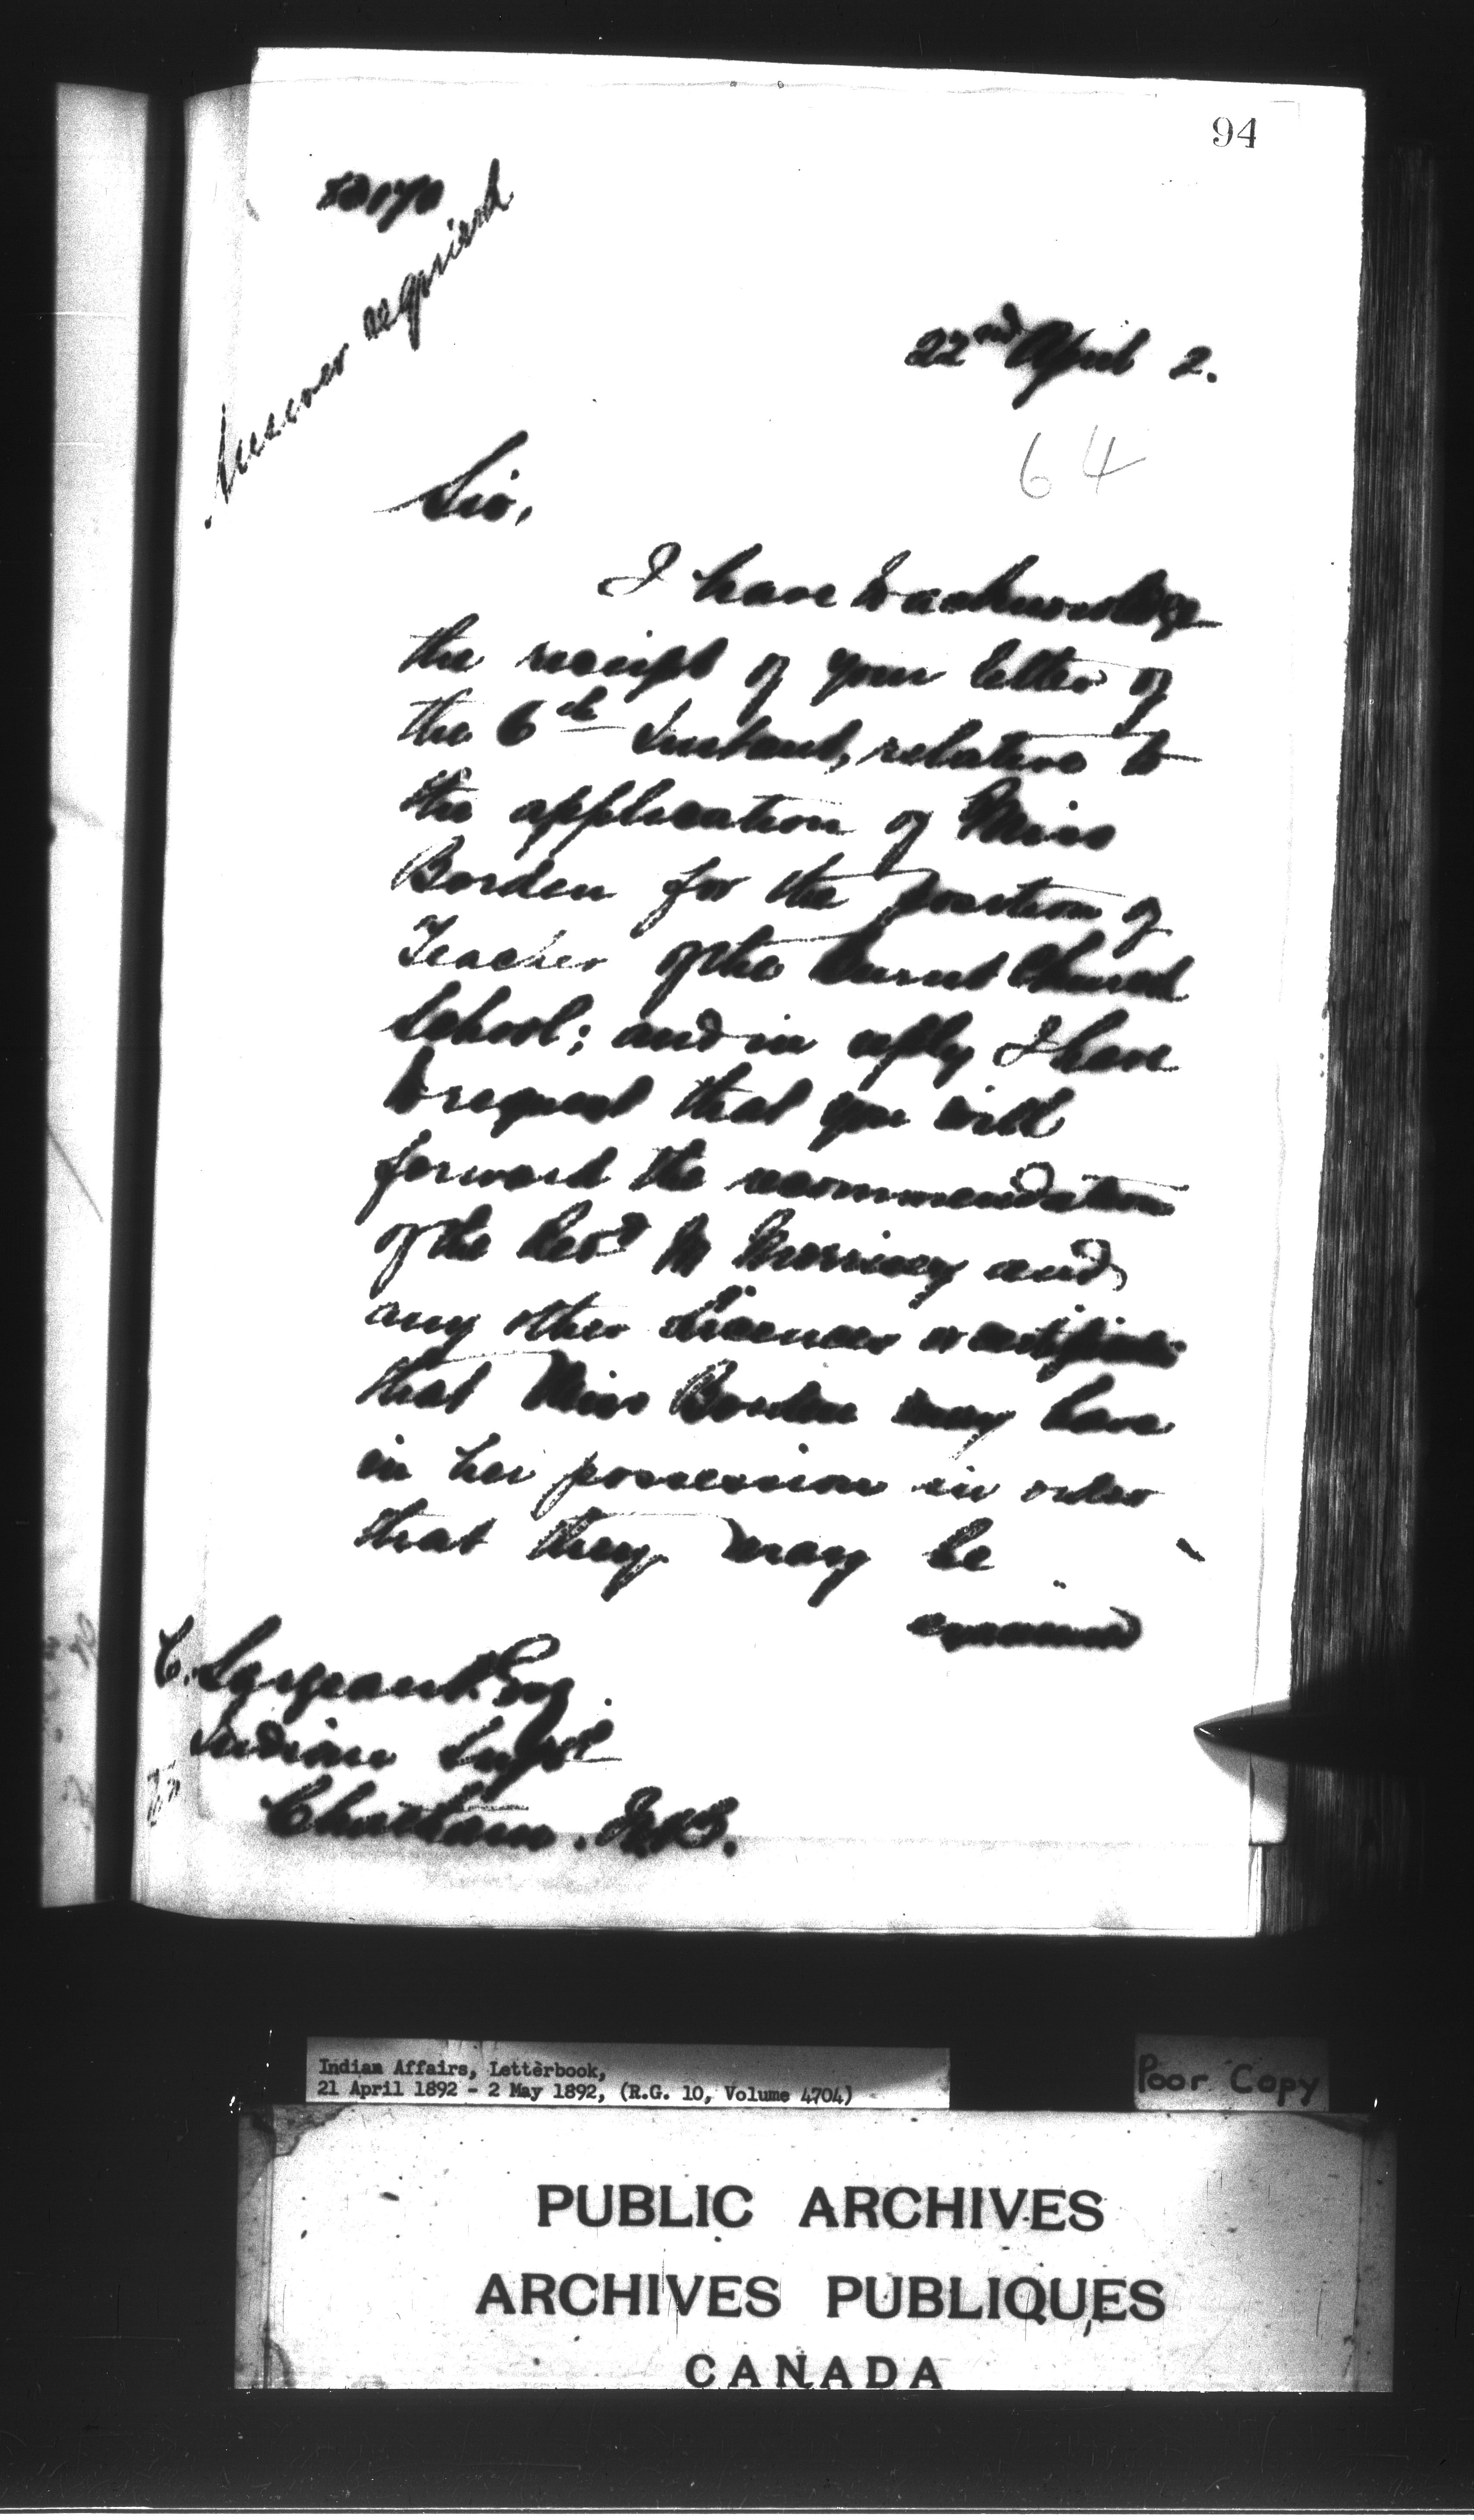 94
Answer required
22nd April 2.
64
Sir,
I have to acknowledge
the receipt of your letter of
the 6th Instant, relative to
the application of Miss
Borden for the position of
Teacher of the Burnt Church
School; and in reply I have
to request that you will
forward the recommendation
of the Revd M Morrisey and
any other Licences or certificates
that Miss Borden may have
in her possession in order
that they may be
examined
C. Sargeant Esq.
Indian Supt
Chatham. N.B.
Indian Affairs, Letterbook,
21 April 1892 - 2 May 1892, (R.G. 10, Volume 4704)
Poor Copy
PUBLIC ARCHIVES
ARCHIVES PUBLIQUES
CANADA